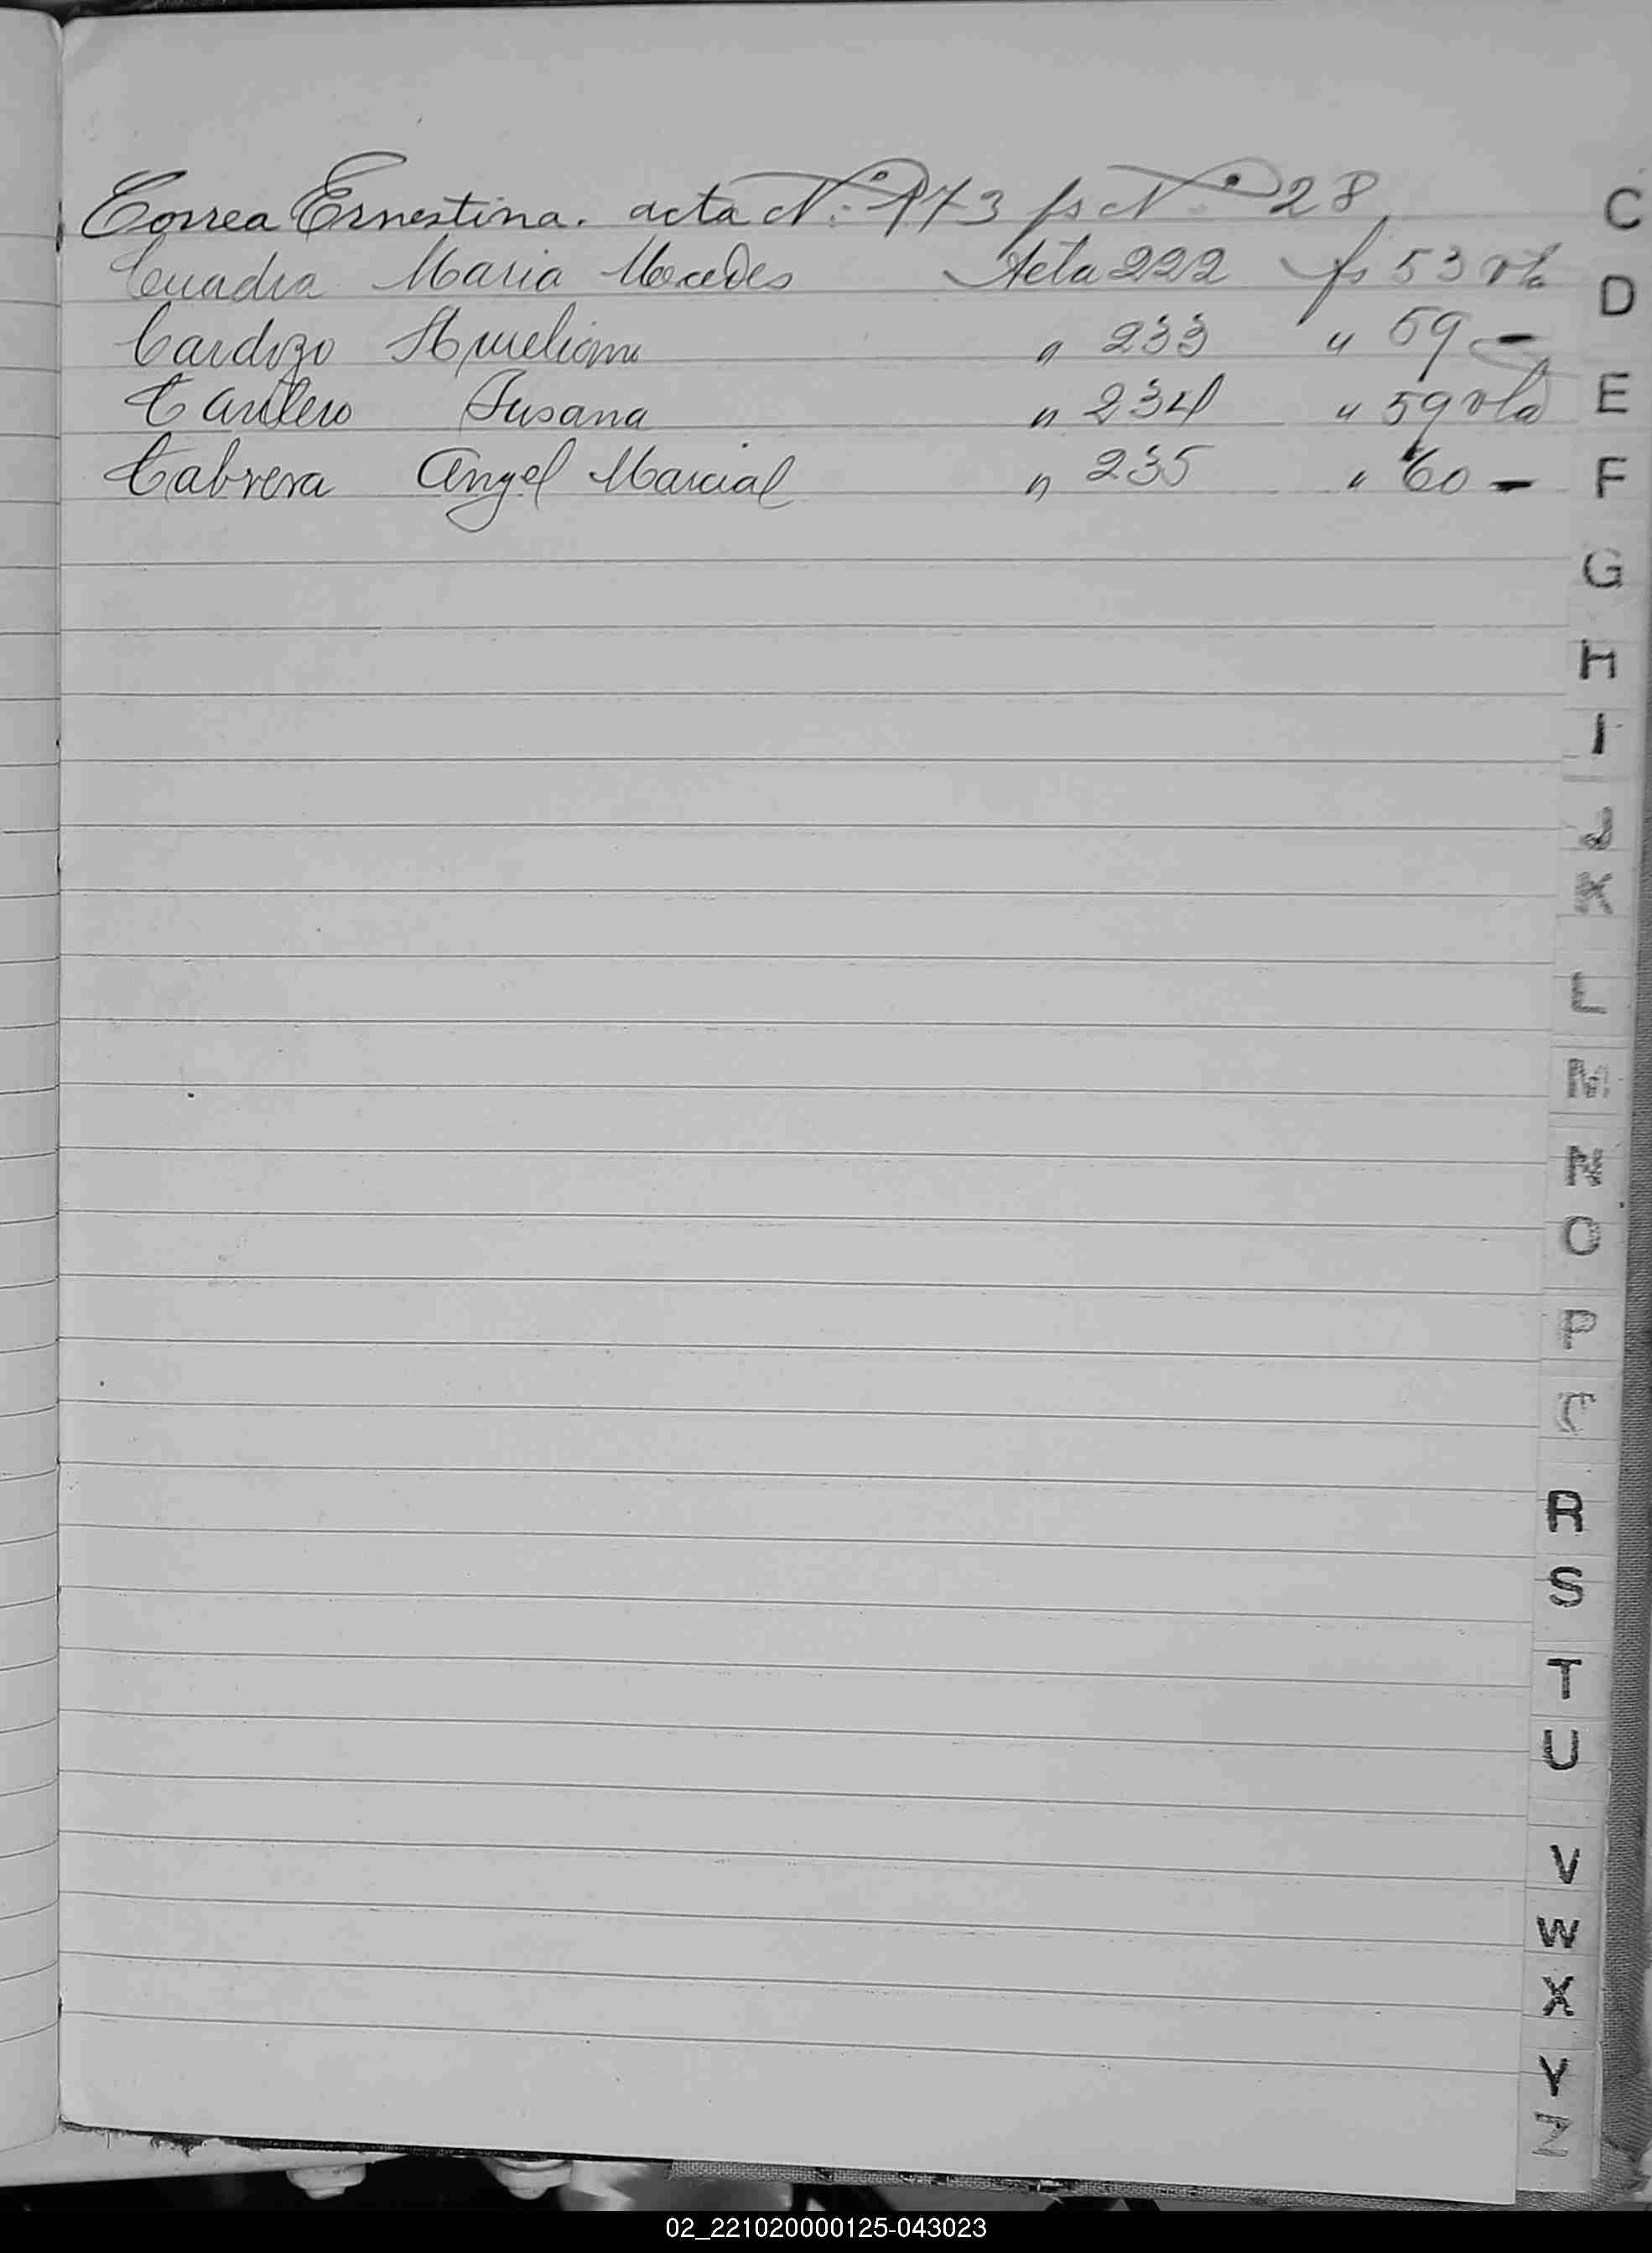 Correa Ernestina. acta Nº 173 fs Nº 28.
Cuadra Maria Mercedes Acta 222 fs 53 vta
Cardozo Aureliano " 233 " 59 -
Cantero Susana " 234 " 59 vta
Cabrera Angel Marcial " 235 " 60 -
C
D
E
F
G
H
I
J
K
L
M
N
O
P
R
S
T
U
V
W
X
Y
Z
02_221020000125-043023